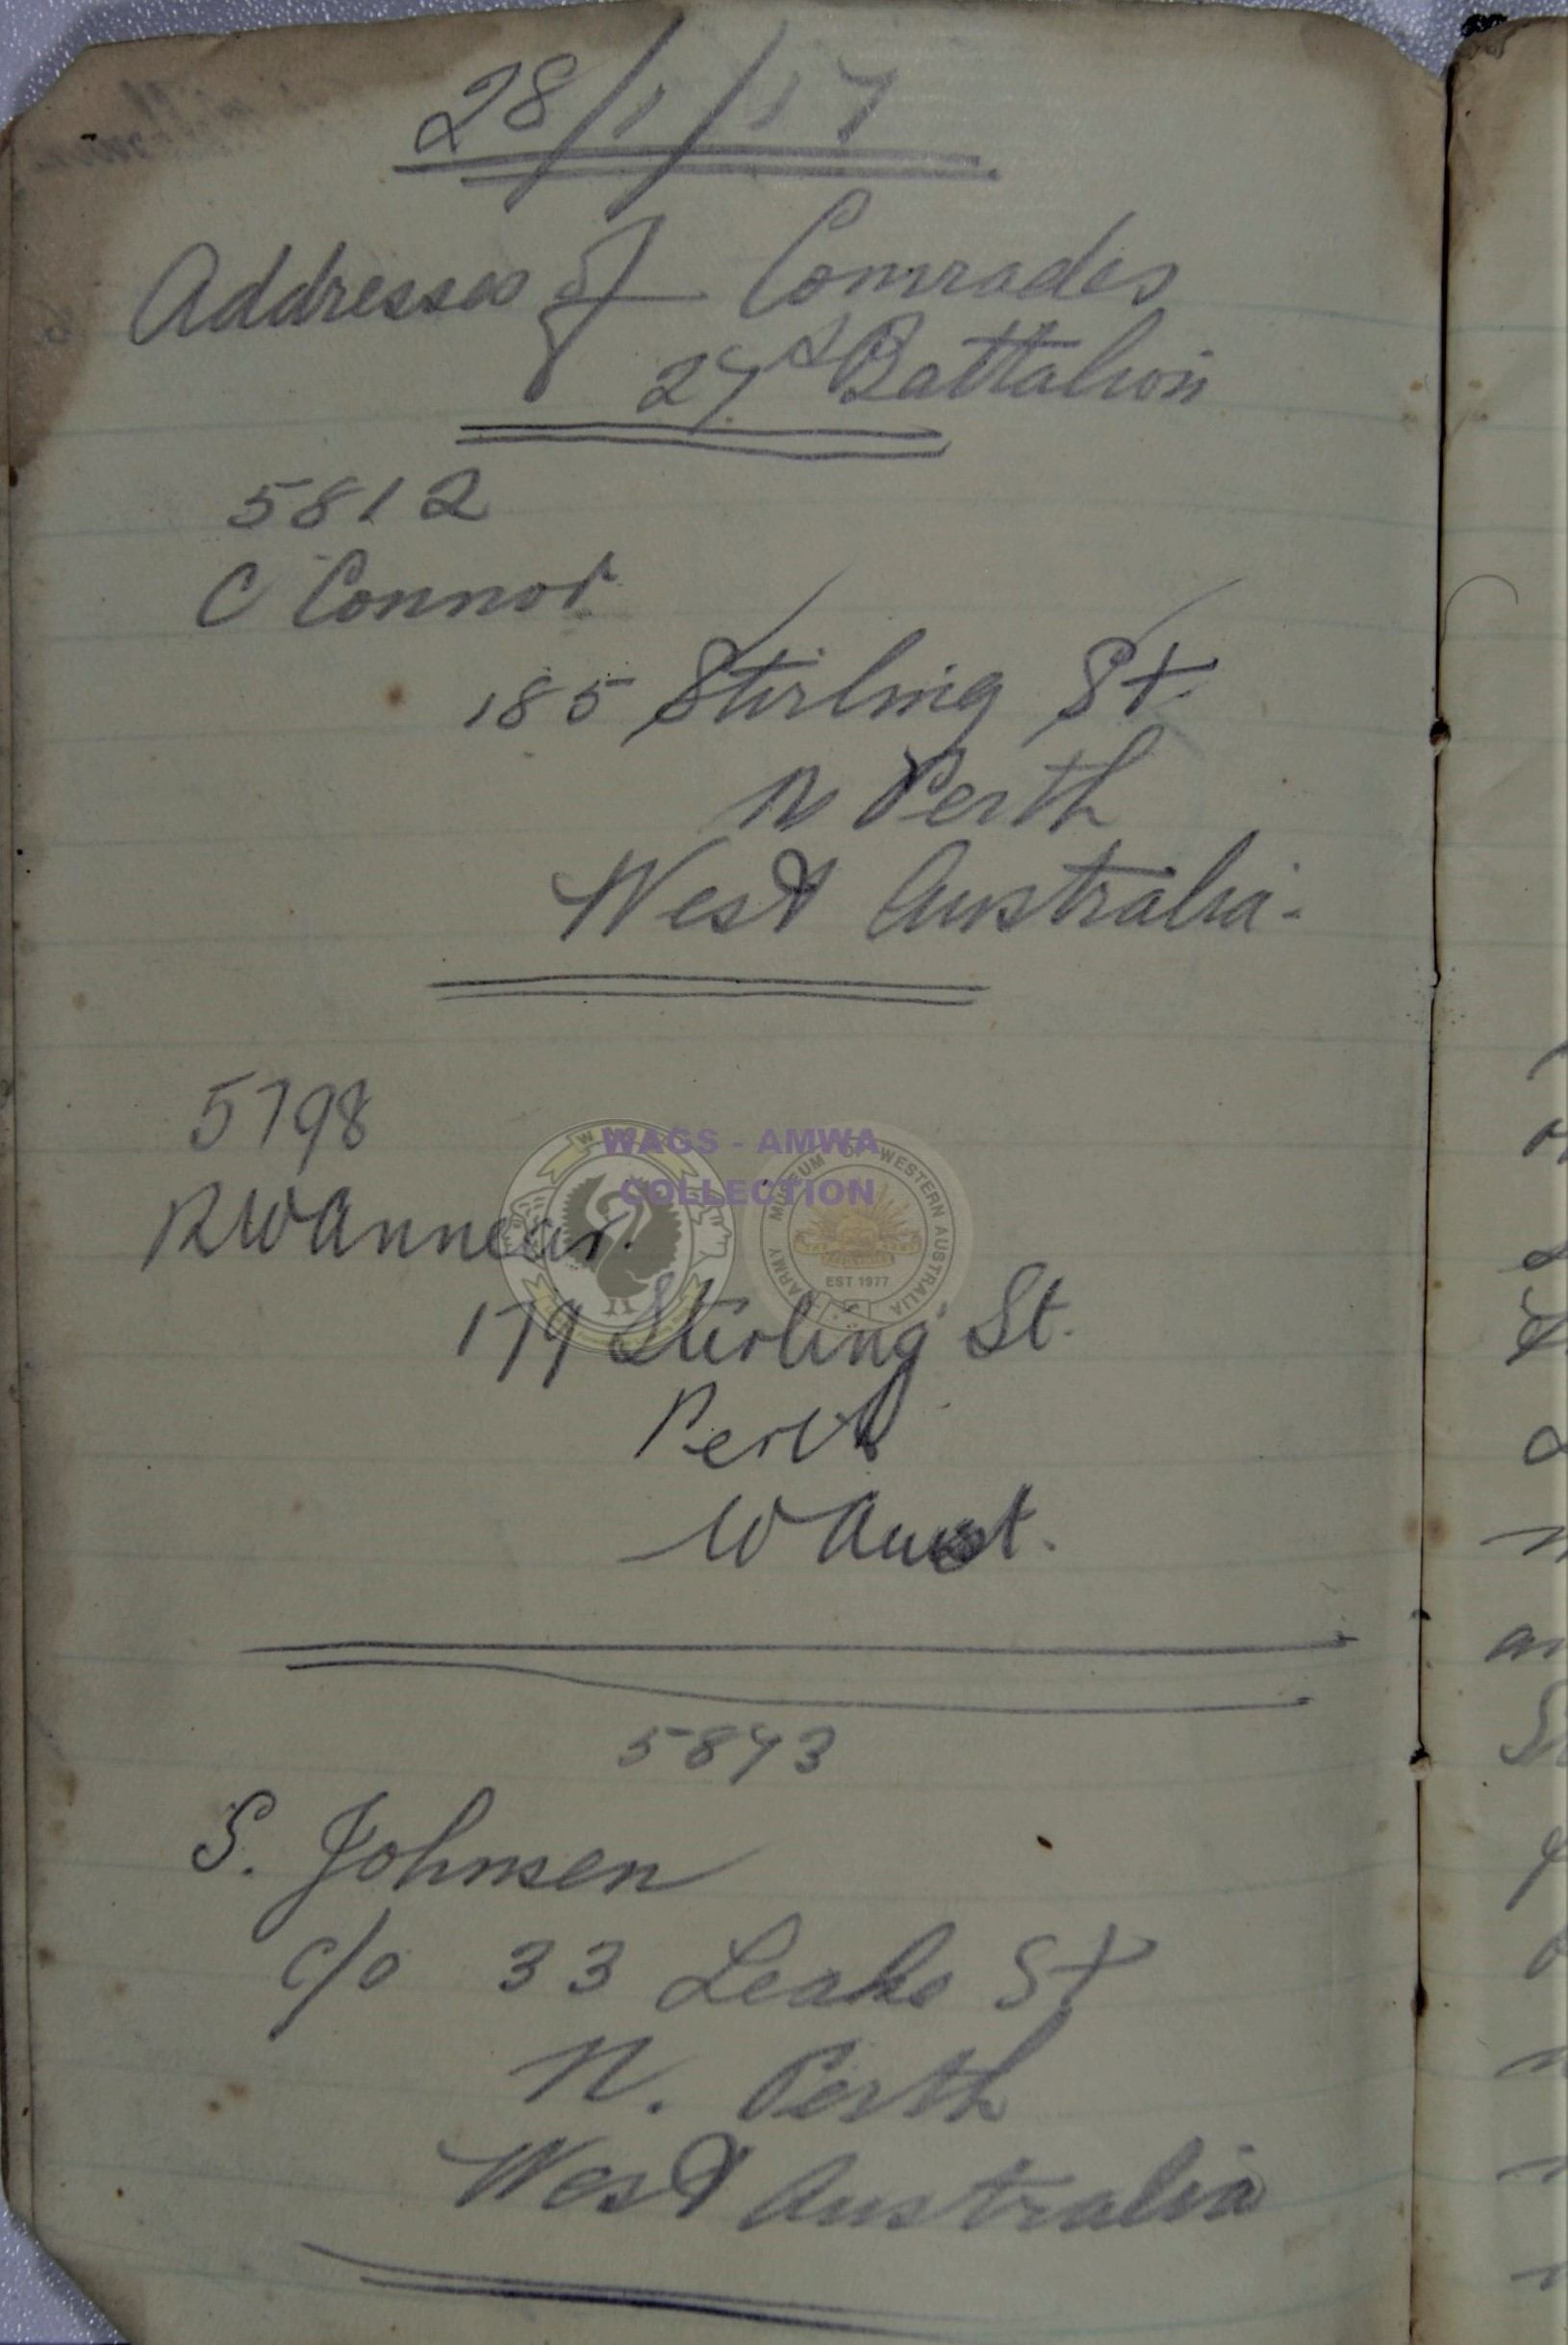 28/1/17
Addresses of Comrades
27th Battalion
5812
C Connor
185 Stirling St.
N Perth
West Australia.
5798
R W Annear.
179 Stirling St.
Perth
W Aust.
5843
S. Johnsen
c/o 33 Leake St
N. Perth
West Australia
WAGS - AMWA
COLLECTION
ARMY MUSEUM OF WESTERN AUSTRALIA
EST 1977